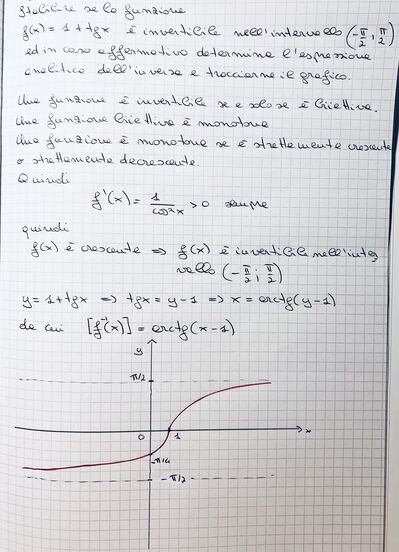 Stabilire se la funzione
f(x) = 1 + tgx è invertibile nell'intervallo (-π/2 ; π/2)
ed in caso affermativo determina l'espressione
analitica dell'inversa e tracciarne il grafico.
Una funzione è invertibile se e solo se è biiettiva.
Una funzione biiettiva è monotona
Una funzione è monotona se è strettamente crescente
o strettamente decrescente.
Quindi
f'(x) = 1/cos²x > 0 sempre
quindi
f(x) è crescente ⇒ f(x) è invertibile nell'inter
vallo (-π/2 ; π/2)
y = 1 + tgx ⇒ tgx = y - 1 ⇒ x = arctg(y - 1)
da cui [f⁻¹(x)] = arctg(x - 1)
y
π/2
0 1 x
-π/4
-π/2